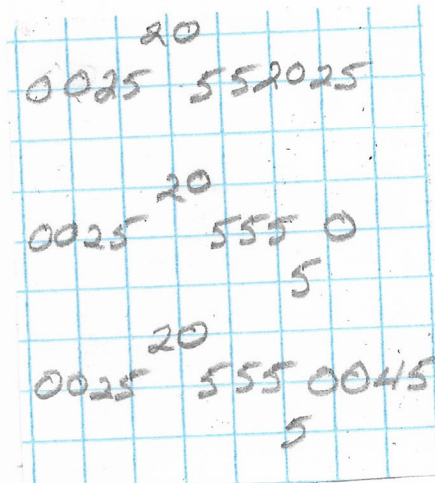 20
0025 552025
20
0025 555 0
5
20
0025 555 0045
5